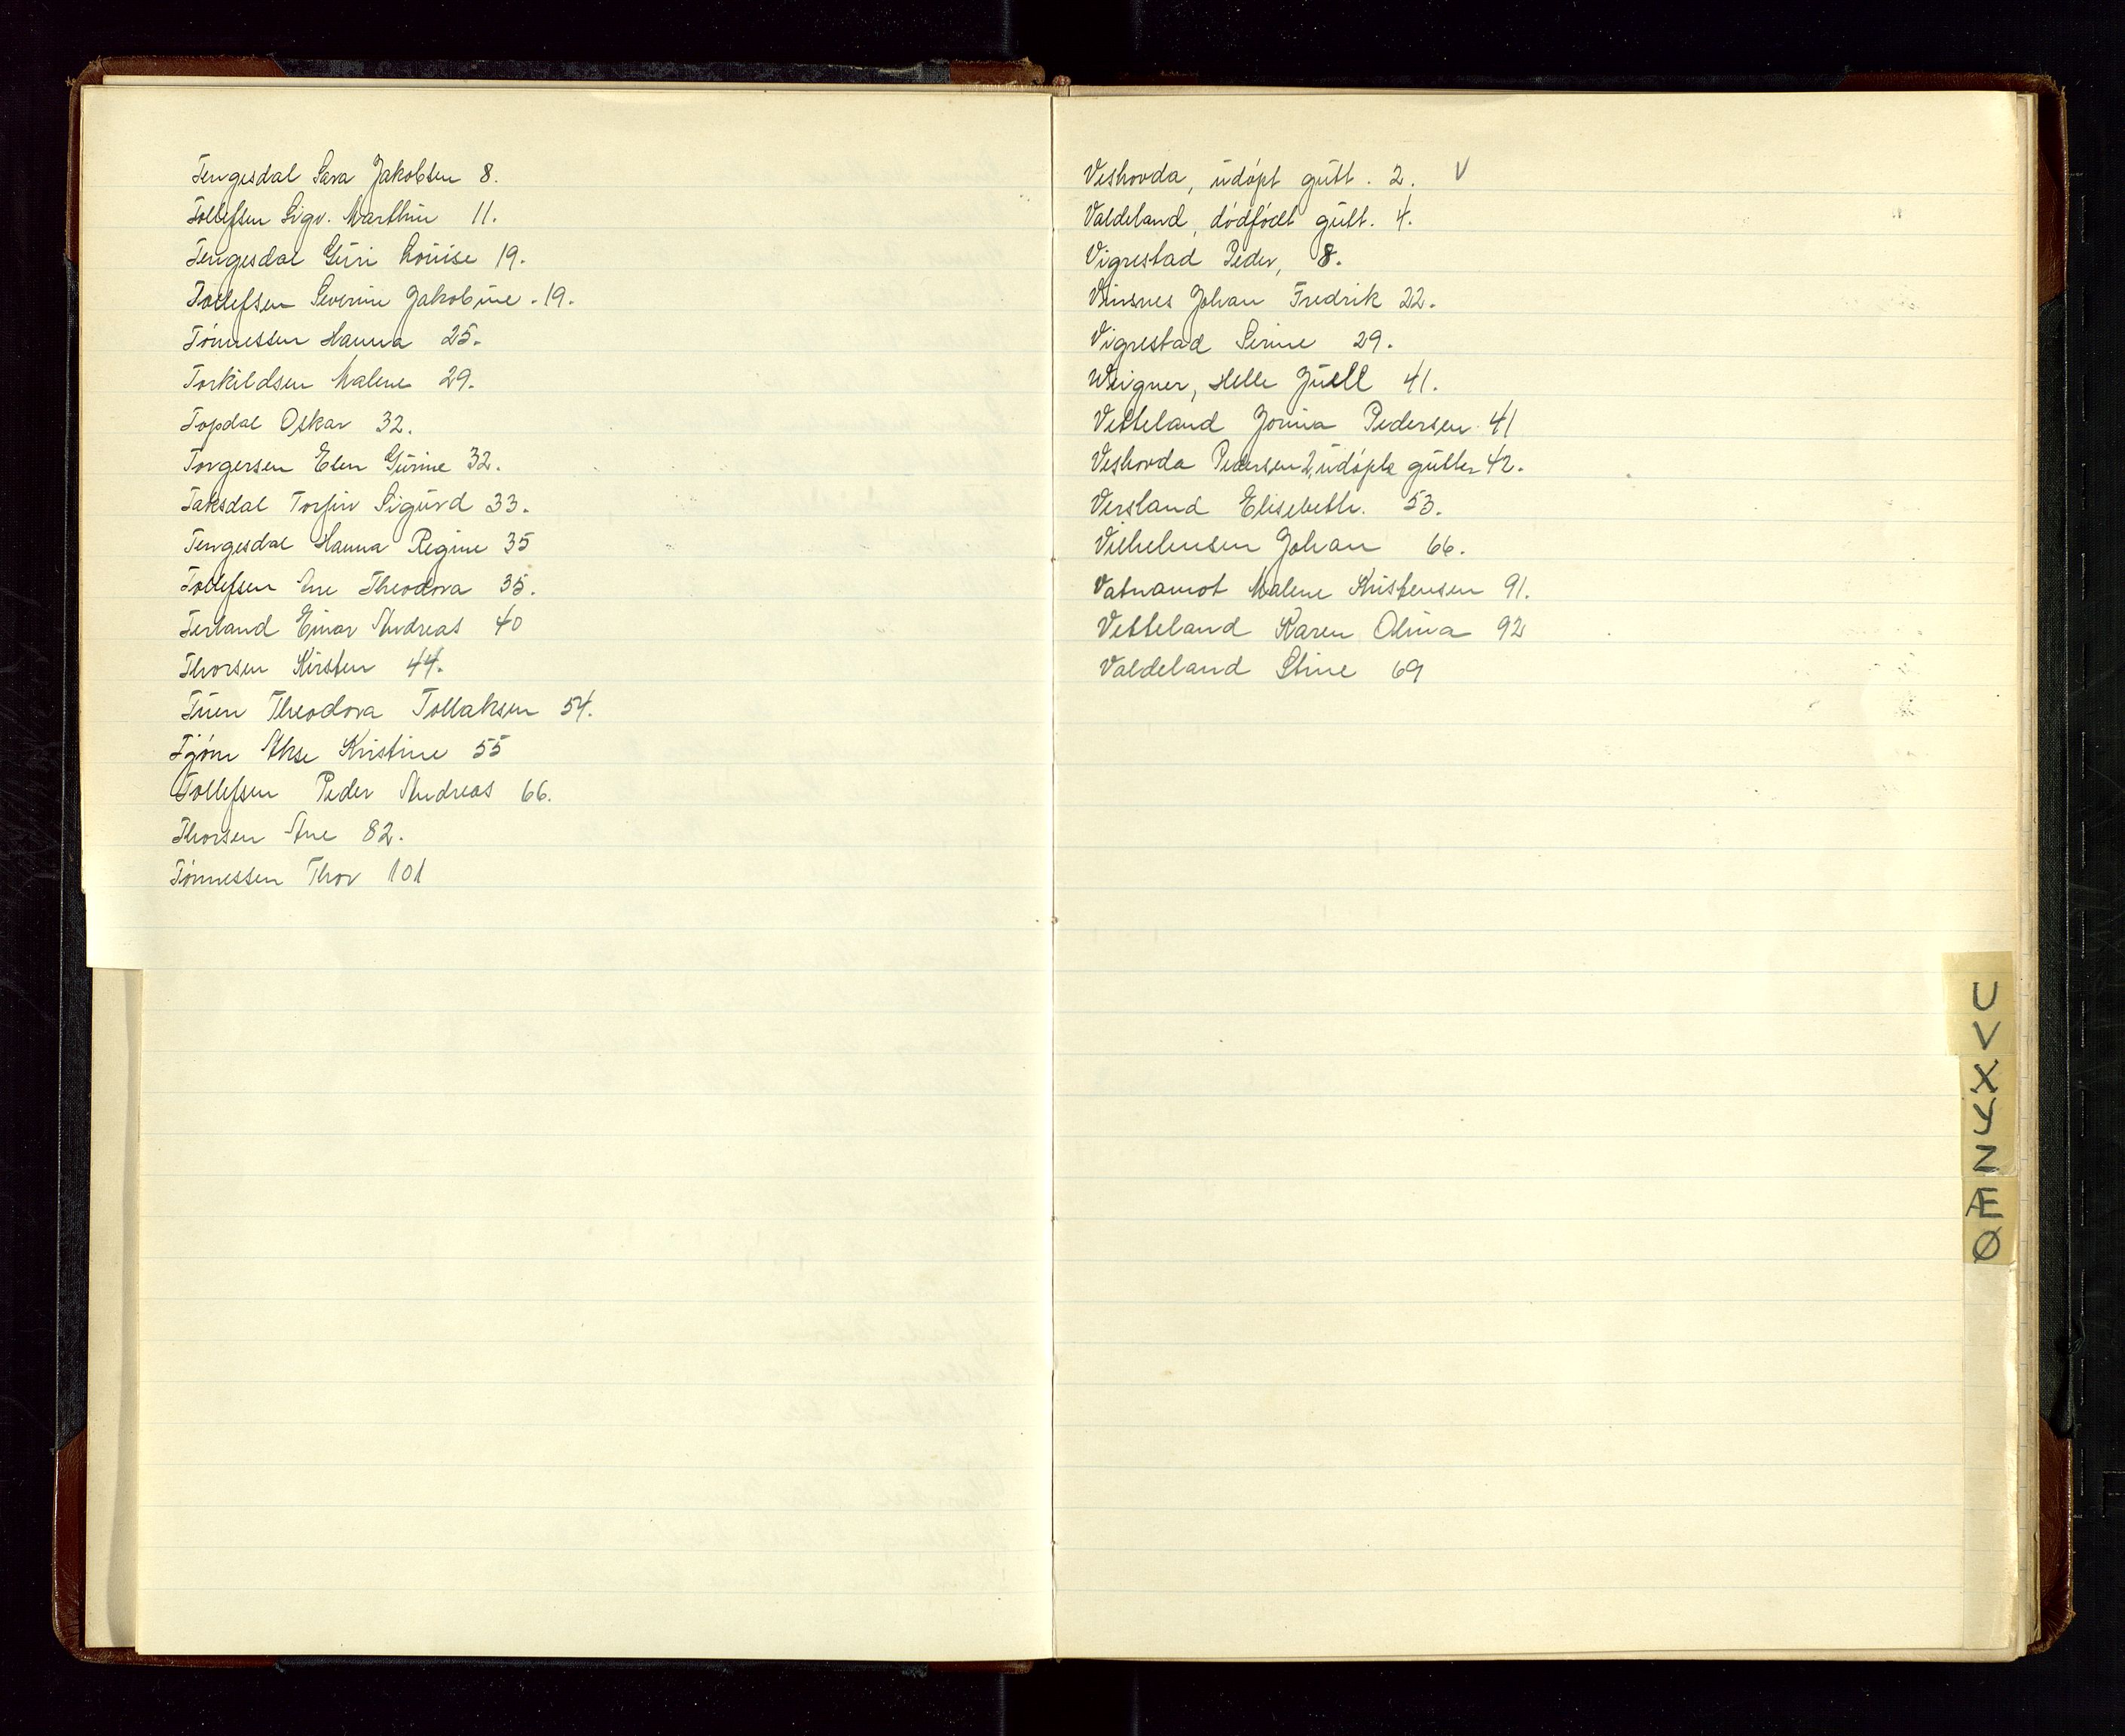 Tengesdal Sara Jakobsen 8.
Tollefsen Sigv. Marthin 11.
Tengesdal Guri Louise 19.
Tollefsen Severine Jakobine. 19.
Tónnessen Hanna 25.
Torkildsen Malene 29.
Topdal Oskar 32.
Torgersen Elen Gurine 32.
Taksdal Torfin Sigurd 33.
Tengesdal Hanna Regine 35
Tollefsen Ane Theodora 35.
Terland Einar Andreas 40
Thorsen Kirsten 44.
Tuen Theodora Tollaksen 54.
Tjóm Akse Kristine 55
Tollefsen Peder Andreas 66.
Thorsen Ane 82.
Tónnessen Thor 101
Veshovda, udópt gutt. 2. V
Valdeland, dódfódt gutt. 4.
Vigrestad Peder, 8.
Vinsnes Johan Fredrik 22.
Vigrestad Serine 29.
Weigner, Helle Juell 41.
Vetteland Jorina Pedersen 41
Veshovda Pedersen 2, udópte gutter 42.
Versland Elisebeth. 53.
Vilhelmsen Johan 66.
Vatnamot Malene Kristensen 91.
Vetteland Karen Olina 92
Valdeland Stine 69
U
V
X
Y
Z
Æ
Ø